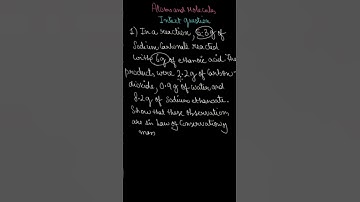 Atoms and Molecules
Intext Question
1) In a reaction, 5.3g of
Sodium Carbonate reacted
with 6g of ethanoic acid. The
products were 2.2g of Carbon-
dioxide, 0.9g of water and
8.2g of Sodium ethanoate.
Show that these observations
are in Law of Conservation of
mass